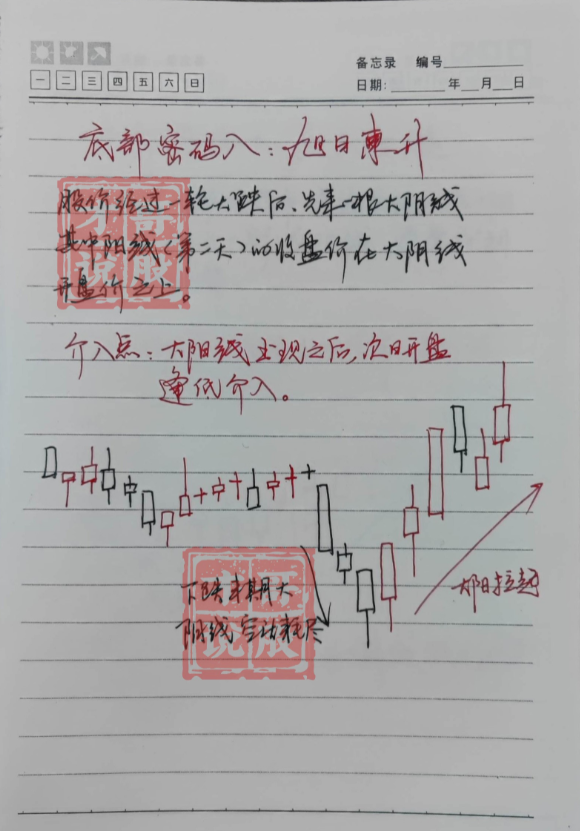 备忘录 编号
一 二 三 四 五 六 日
日期: 年 月 日
底部密码八：旭日東升
股价经过一轮大跌后、先来一根大阴线
其中阳线(第二天)的收盘价在大阴线
开盘价之上。
介入点：大阳线出现之后,次日开盘
逢低介入。
下跌末期大
阴线空方耗尽
拉起